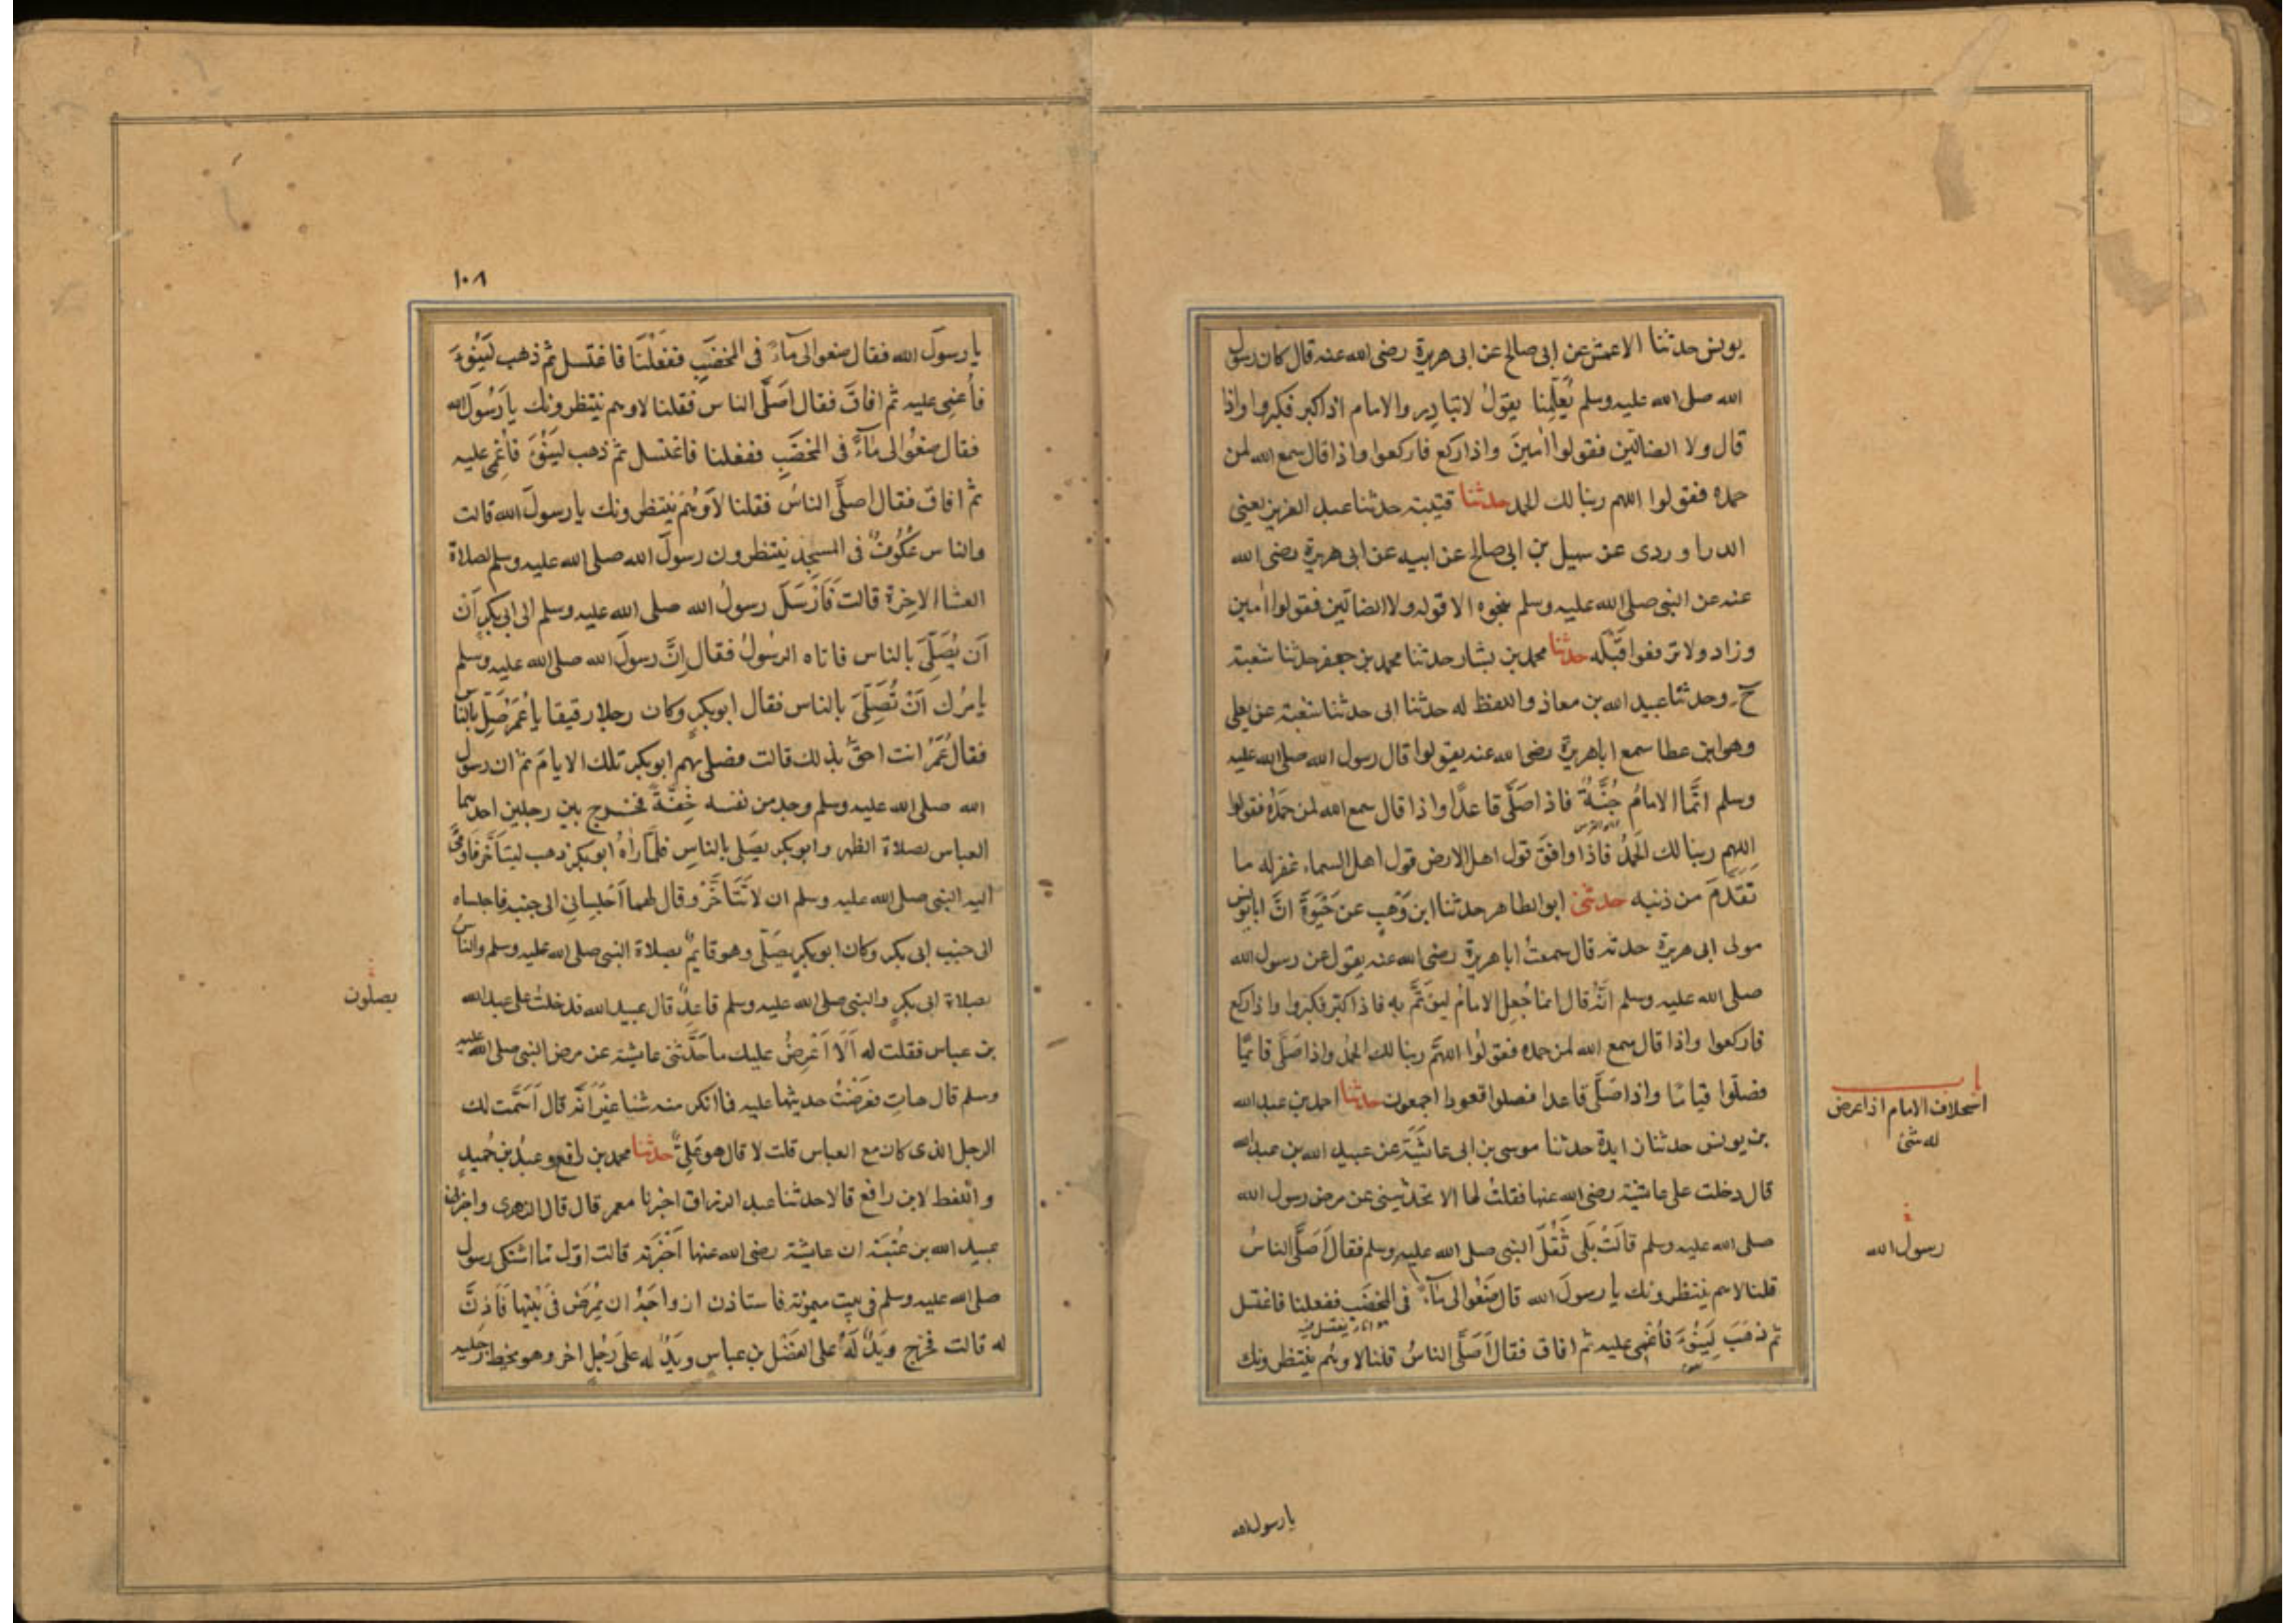 يونس حدثنا الاعمش عن ابى صالح عن ابى هريرة رضى الله عنه قال كان رسول
الله صلى الله عليه وسلم يُعَلِّمنا يقولُ لا تبادِروا الامام اذا كبر فكبروا واذا
قال ولا الضالين فقولوا اٰمينَ واذا ركع فاركعوا واذا قال سمع الله لمن
حمده فقولوا اللهم ربنا لك الحمد حدثنا قتيبة حدثنا عبد العزيز يعنى
الدراوردى عن سهيل بن ابى صالح عن ابيه عن ابى هريرة رضى الله
عنه عن النبى صلى الله عليه وسلم بنحوه الا قوله ولا الضالين فقولوا اٰمين
وزاد ولا ترفعوا قَبْلَه حدثنا محمد بن بشار حدثنا محمد بن جعفر حدثنا شعبة
ح وحدثنا عبيد الله بن معاذ واللفظ له حدثنا ابى حدثنا شعبة عن يعلى
وهو ابن عطا سمع ابا هريرة رضى الله عنه يقولوا قال رسول الله صلى الله عليه
وسلم انَّما الامامُ جُنَّةٌ فاذا صَلَّى قاعدًا واذا قال سمع الله لمن حَمِدَهُ فقولوا
اللهم ربنا لك الحَمْدُ فاذا وافَقَ قول اهل الارض قول اهل السماء غفر له ما
تَقَدَّمَ من ذنبه حدثنى ابو الطاهر حدثنا ابن وَهْبٍ عن حَيْوَةَ انَّ ابا يونس
مولى ابى هريرة حدثه قال سمعتُ ابا هريرة رضى الله عنه يقول عن رسول الله
صلى الله عليه وسلم انَّهُ قال انما جُعِلَ الامامُ ليؤتَمَّ به فاذا كبّر فكبّروا واذا ركع
فاركعوا واذا قال سمع الله لمن حمده فقولُوا اللهُمَّ ربنا لك الحمدُ واذا صَلَّى قائمًا
فصلّوا قيامًا واذا صَلَّى قاعدا فصلوا قعودا اجمعون حدثنا احمد بن عبد الله
بن يونس حدثنا زايدة حدثنا موسى بن ابى عائشَةَ عن عبيد الله بن عبد الله
قال دخلت على عائشة رضى الله عنها فقلتُ لها الا تحدّثينى عن مرض رسول الله
صلى الله عليه وسلم قالَتْ بَلَى ثَقُلَ النبى صلى الله عليه وسلم فقال اَصَلَّى الناسُ
قلنا لا هم ينتظرونك يا رسولَ الله قال ضَعُوا لى مَآءً فى المخضَبِ ففعلنا فاغتسل
ثم ذهَبَ لِيَنُوءَ فأُغْمِىَ عليه ثم افاق فقال اَصَلَّى الناسُ قلنا لا وهُم ينتظرونك
باب
استخلاف الامام اذا عرض
له شئ
رسول الله
يا رسول الله
١٠٨
يا رسولَ الله فقال ضعوا لى مَآءً فى المخضَبِ ففعَلْنَا فاغتسل ثم ذهب لِيَنُوءَ
فأُغمِىَ عليه ثم افاقَ فقال اَصَلَّى الناس فقلنا لا وهم ينتظرونك يا رَسُولَ الله
فقال ضَعُوا لى مَآءً فى المخضَبِ ففعلنا فاغتسل ثم ذهب ليَنُوءَ فأُغْمِىَ عليه
ثم افاق فقال اصلَّى الناسُ فقلنا لا وهُمْ ينتظرونك يا رسولَ الله قالت
والناس عُكُوفٌ فى المسجِد ينتظرون رسولَ الله صلى الله عليه وسلم لصلاة
العشا الاخِرة قالت فَاَرْسَلَ رسولُ الله صلى الله عليه وسلم الى ابى بكرٍ اَن
اَن يُصَلِّىَ بالناس فاتاه الرسُولُ فقال اِنَّ رسولَ الله صلى الله عليه وسلم
يامُرُك اَنْ تُصَلِّىَ بالناس فقال ابو بكرٍ وكان رجلا رقيقا يا عُمَرُ صَلِّ بالناس
فقال عُمَرُ انت احقُّ بذلك قالت فصلى بهم ابو بكر تلك الايامَ ثم ان رسول
الله صلى الله عليه وسلم وجد من نفسه خِفَّةً فخرج بين رجلين احدهما
العباس لصلاة الظهر وابو بكر يصَلى بالناسِ فلمّا رآهُ ابو بكر ذهب ليتاَخَّرَ فَاَومَى
اليه النبى صلى الله عليه وسلم ان لا تَتَاخَّرْ وقال لهما اَجْلِسَانِى الى جنبِه فاجلساه
الى جنب ابى بكر وكان ابو بكرٍ يصَلّى وهو قايمٌ بصلاة النبى صلى الله عليه وسلم والناسُ
بصلاة ابى بكرٍ والنبى صلى الله عليه وسلم قاعِدٌ قال عبيد الله فدخلتُ على عبد الله
بن عباس فقلت له اَلَا اَعْرِضُ عليك ما حَدَّثتنى عايشة عن مرض النبى صلى الله عليه
وسلم قال هاتِ فعَرَضْتُ حديثها عليه فما انكر منه شئا غيْرَ اَنَّه قال اَسَمَّت لك
الرجل الذى كان مع العباس قلت لا قال هو عَلِىٌّ حدثنا محمد بن رافع وعبدُ بن حُميدٍ
واللفظ لابن رافع قالا حدثنا عبد الرزاق اخبرنا معمر قال قال الزهرى واخبرنى
عبيد الله بن عُتبَة ان عايشة رضى الله عنها اَخْبَرَته قالت اوّل ما اشتكى رسول
صلى الله عليه وسلم فى بيت ميمونة فاستاذن ازواجَهُ ان يُمَرَّض فى بَيْتِها فَاَذِنَّ
له قالت فخرج ويَدٌ لَهُ على الفَضْل بن عباس ويَدٌ له على رَجُلٍ اخر وهو يخط برجليه
يصلّون